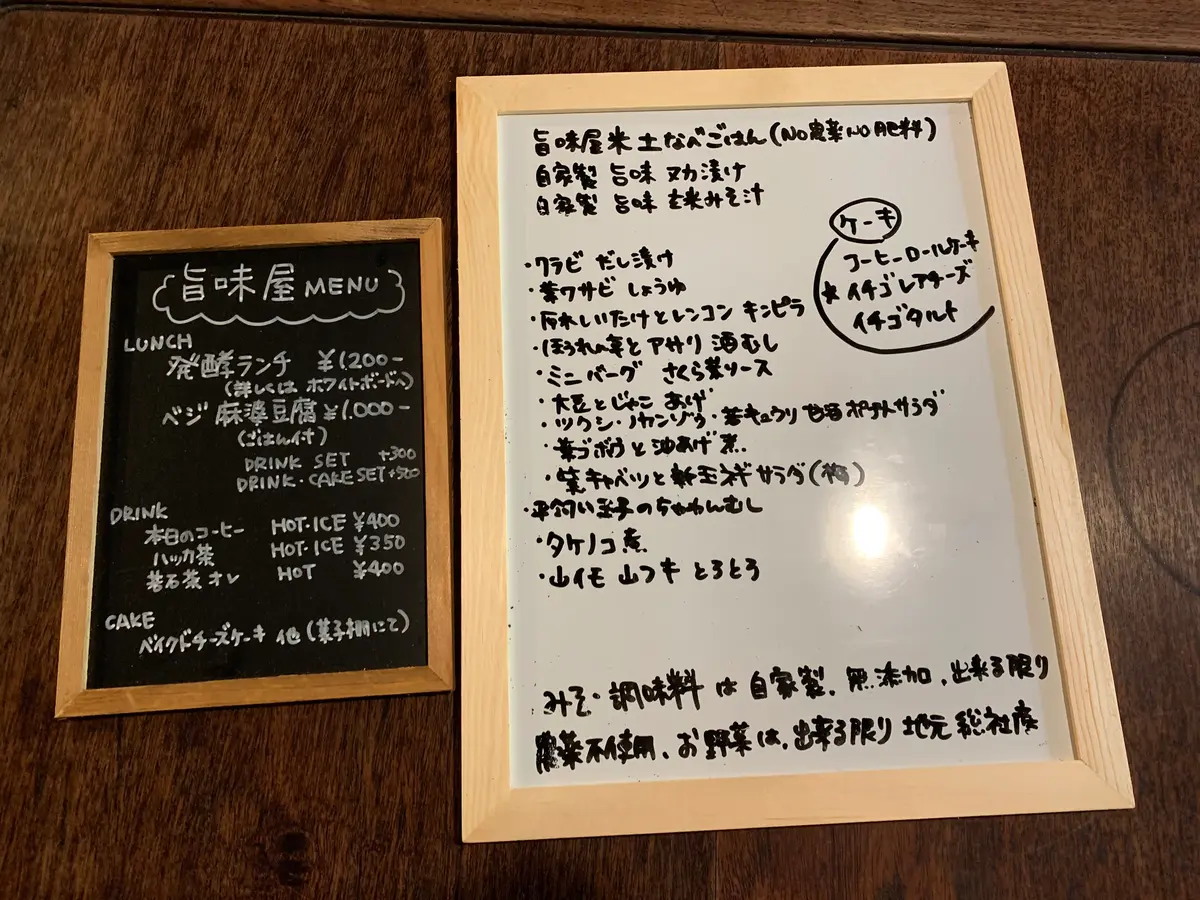 旨味屋 MENU
LUNCH
発酵ランチ ¥1,200-
(詳しくは ホワイトボードへ)
ベジ 麻婆豆腐 ¥1,000-
(ごはん付)
DRINK SET +300
DRINK・CAKE SET +500
DRINK
本日のコーヒー HOT・ICE ¥400
ハッカ茶 HOT・ICE ¥350
碁石茶オレ HOT ¥400
CAKE
ベイクドチーズケーキ 他 (菓子棚にて)
旨味屋米 土なべごはん (NO農薬NO肥料)
自家製 旨味 ヌカ漬け
自家製 旨味 玄米みそ汁
・ワラビ だし漬け
・葉ワサビ しょうゆ
・原木しいたけとレンコン キンピラ
・ほうれん草とアサリ 酒むし
・ミニバーグ さくら葉ソース
・大豆とじゃこ あげ
・ツクシ・ノカンゾウ・若キュウリ 甘酒ポテトサラダ
・葉ゴボウと油あげ 煮
・紫キャベツと新玉ネギ サラダ(梅)
・平飼い玉子のちゃわんむし
・タケノコ煮
・山イモ 山フキ とろとう
ケーキ
コーヒーロールケーキ
イチゴレアチーズ
イチゴタルト
みそ・調味料 は 自家製、無添加、出来る限り
農薬不使用、お野菜は、出来る限り 地元 総社産